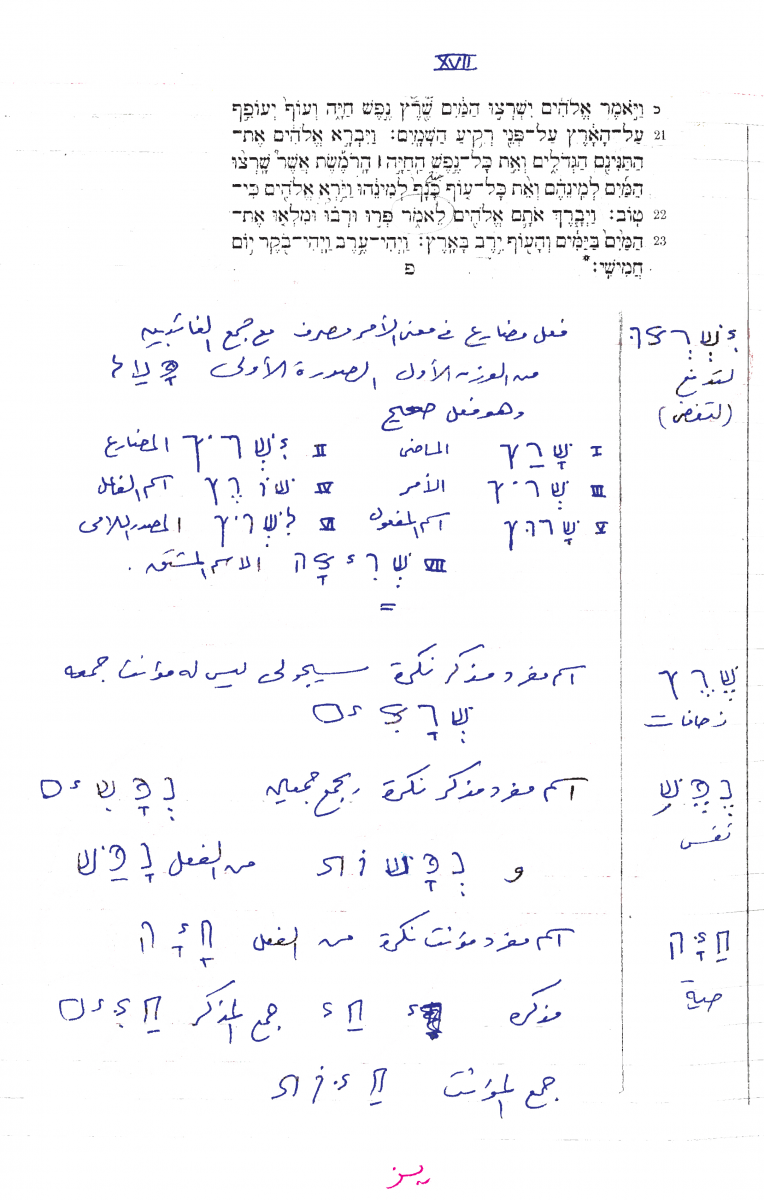 XVII
כ וַיֹּ֣אמֶר אֱלֹהִ֔ים יִשְׁרְצ֣וּ הַמַּ֔יִם שֶׁ֖רֶץ נֶ֣פֶשׁ חַיָּ֑ה וְעוֹף֙ יְעוֹפֵ֣ף
21 עַל־הָאָ֔רֶץ עַל־פְּנֵ֖י רְקִ֥יעַ הַשָּׁמָֽיִם׃ וַיִּבְרָ֣א אֱלֹהִ֔ים אֶת־
הַתַּנִּינִ֖ם הַגְּדֹלִ֑ים וְאֵ֣ת כָּל־נֶ֣פֶשׁ הַֽחַיָּ֣ה ׀ הָֽרֹמֶ֡שֶׂת אֲשֶׁר֩ שָׁרְצ֨וּ
הַמַּ֜יִם לְמִֽינֵהֶ֗ם וְאֵ֨ת כָּל־ע֤וֹף כָּנָף֙ לְמִינֵ֔הוּ וַיַּ֥רְא אֱלֹהִ֖ים כִּי־
22 טֽוֹב׃ וַיְבָ֧רֶךְ אֹתָ֛ם אֱלֹהִ֖ים לֵאמֹ֑ר פְּר֣וּ וּרְב֗וּ וּמִלְא֤וּ אֶת־
23 הַמַּ֙יִם֙ בַּיַּמִּ֔ים וְהָע֖וֹף יִ֥רֶב בָּאָֽרֶץ׃ וַֽיְהִי־עֶ֥רֶב וַֽיְהִי־בֹ֖קֶר י֥וֹם
חֲמִישִֽׁי׃ פ
יִשְׁרְצוּ فعل مضارع في معنى الأمر مصرف مع جمع الغائبين
من الوزن الأول الصورة الأولى פָּעַל
(لتفض) وهو فعل صحيح
I שָׁרַץ الماضى II יִשְׁרׄץ المضارع
III שְׁרׄץ الأمر IV שׁוֹרֵץ اسم الفاعل
V שָׁרוּץ اسم المفعول VI לִשְׁרׄץ المصدر اللامى
VII שְׁרִיצָה الاسم المشتق .
=
שֶׁרֶץ اسم مفرد مذكر نكرة سيجولى ليس له مؤنث جمعه
زحافات שְׁרָצִים
נֶפֶשׁ اسم مفرد مذكر نكرة يجمع جمعين נְפָשִׁים
نفس و נְפָשׁוֹת من الفعل נָפַשׁ
חַיָּה اسم مفرد مؤنث نكرة من الفعل חָיָה
حية مذكره חַי جمع المذكر חַיִּים
جمع المؤنث חַיּוֹת
يز